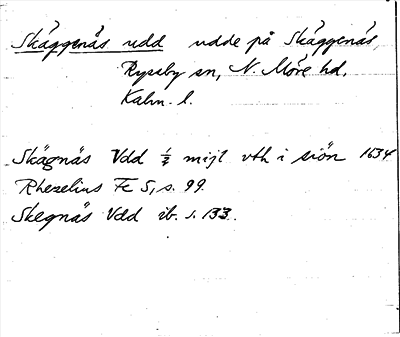 Skäggenäs udd udde på Skäggenäs,
Ryssby sn, N. Möre hd,
Kalm. l.
Skägnäs Vdd ½ mijl vth i siön 1634
Rhezelius Fc 5, s. 99.
Skegnäs Vdd ib. s. 133.